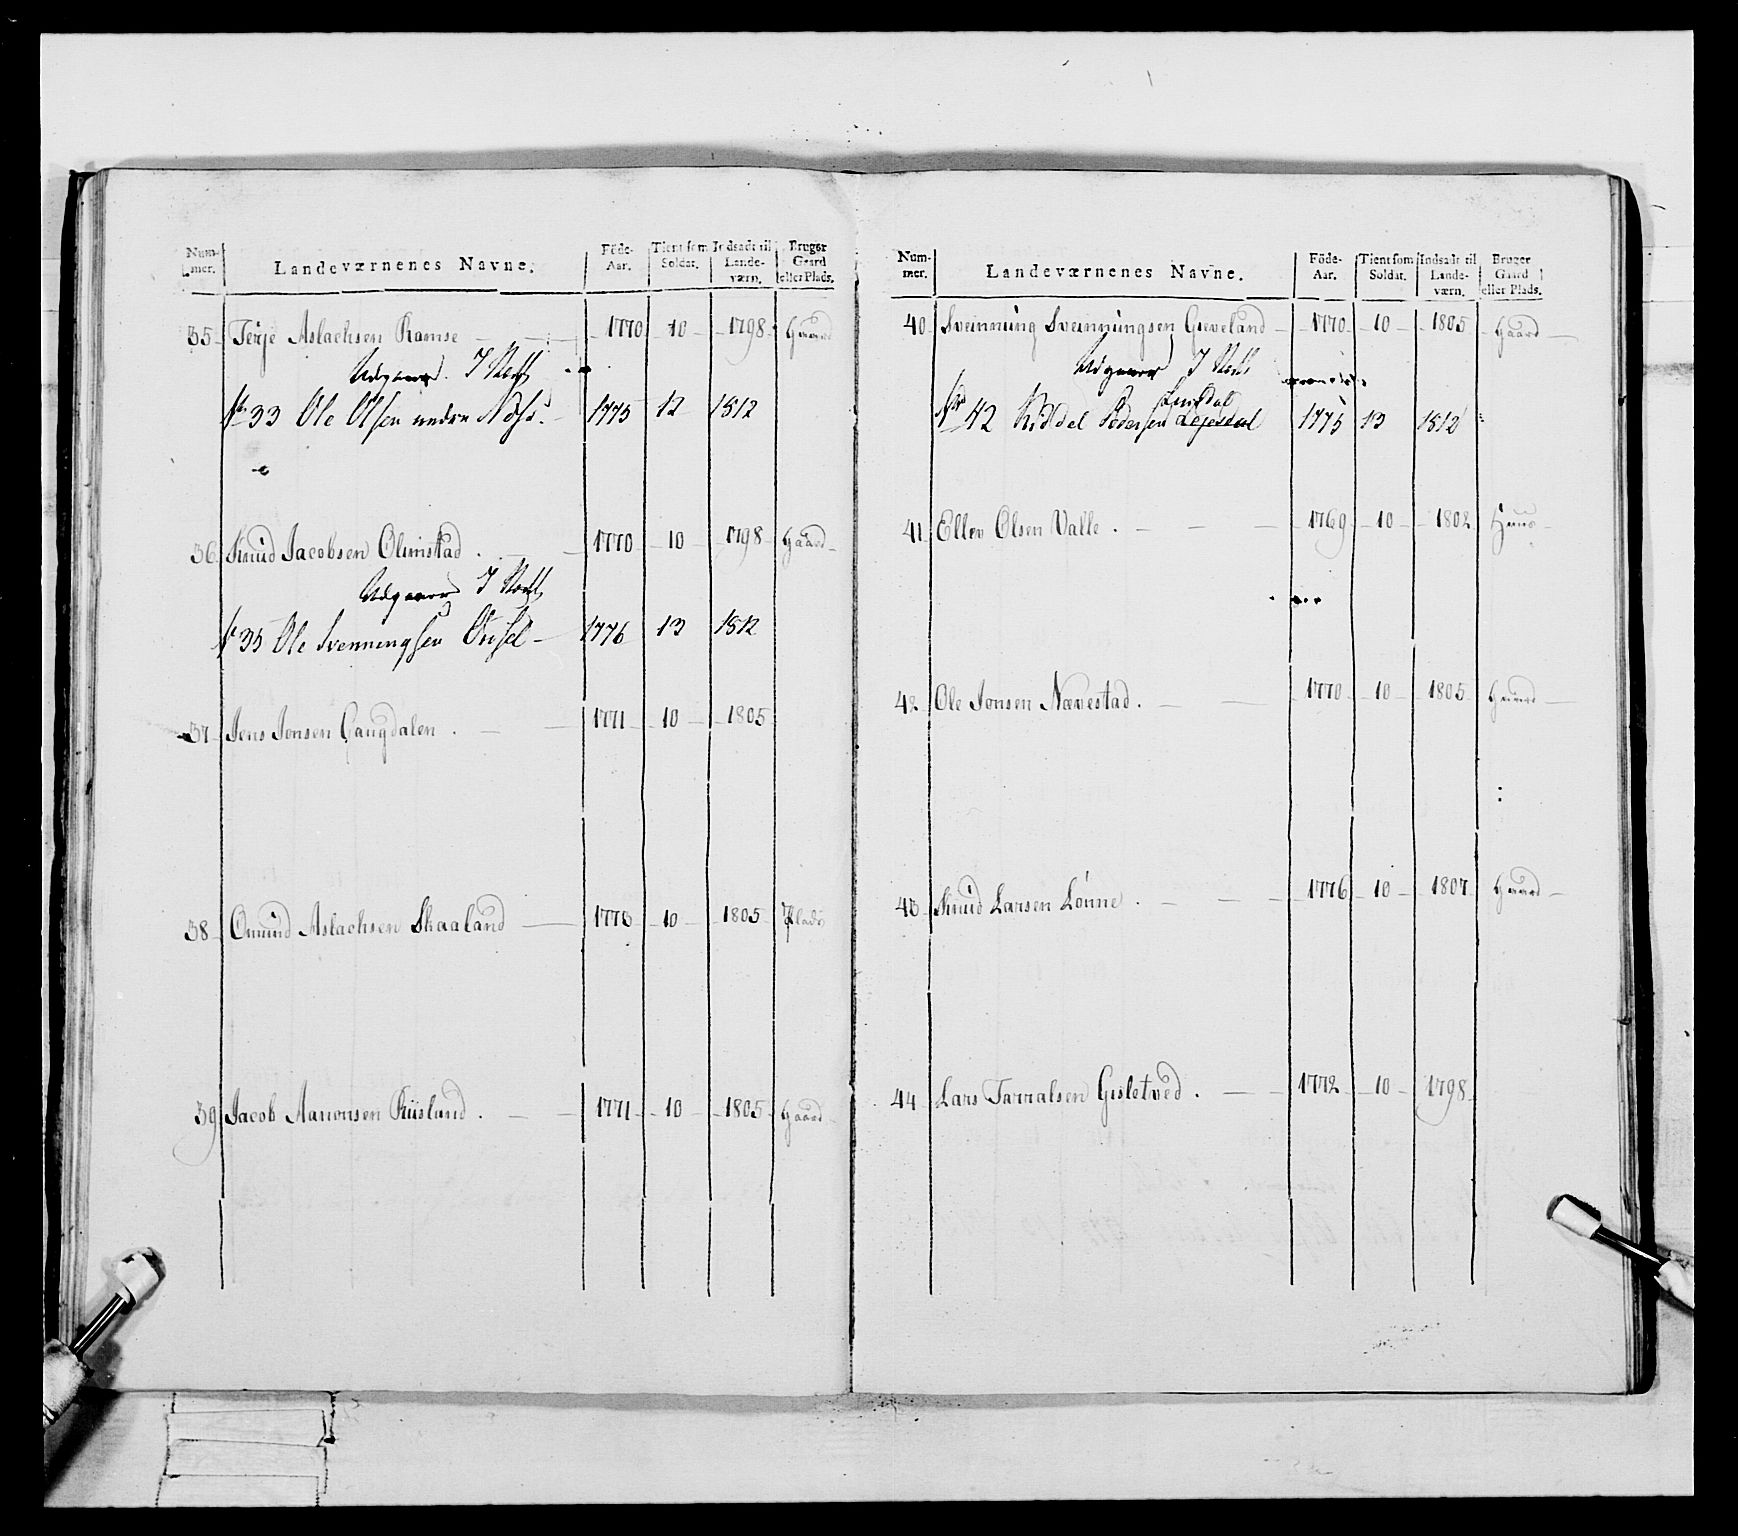 Num-mer. Landeværnenes Navne. Föde-Aar. Tient som Soldat. Indsadt til Lande-værn. Bruger Gaard eller Plads.
35 Terje Aslachsen Ramse 1770 10 1798 Gaard
Udgaaer
33 Ole Olsen nedre 1775 12 1812
36 Knud Jacobsen Olimstad 1770 10 1798 Gaard
Udgaaer
35 Ole Svenningsen 1776 13 1812
37 Jens Jonsen Gaugdalen 1771 10 1805
38 Omund Aslachsen Skaaland 10 1805 Plads
39 Jacob Aanonsen Riisland 1771 10 1805 Gaard
Num-mer. Landeværnenes Navne. Föde-Aar. Tient som Soldat. Indsadt til Lande-værn. Bruger Gaard eller Plads.
40 Sveinnung Sveinnungsen Greveland 1770 10 1805 Gaard
Udgaaer
No 42 Kiddel Pedersen 1775 13 1812
41 Ellev Olsen Valle 1769 10 1802 Huus
42 Ole Jonsen Nævestad 1770 10 1805 Gaard
43 Knud Larsen Lønne 1776 10 1807 Gaard
44 Lars Tarralsen Gisletved 1772 10 1798